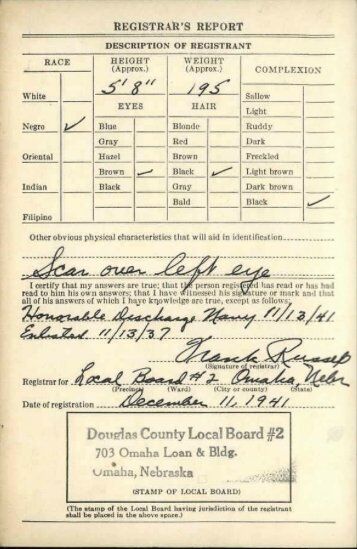 REGISTRAR'S REPORT
DESCRIPTION OF REGISTRANT
RACE
HEIGHT (Approx.)
WEIGHT (Approx.)
COMPLEXION
5' 8"
195
White
Sallow
EYES
HAIR
Light
Negro ✓
Blue
Blonde
Ruddy
Gray
Red
Dark
Oriental
Hazel
Brown
Freckled
Brown ✓
Black ✓
Light brown
Indian
Black
Gray
Dark brown
Bald
Black ✓
Filipino
Other obvious physical characteristics that will aid in identification
Scar over left eye
I certify that my answers are true; that the person registered has read or has had
read to him his own answers; that I have witnessed his signature or mark and that
all of his answers of which I have knowledge are true, except as follows:
Honorable Discharge Navy 11/13/41
Enlisted 11/13/37
Frank Russell
(Signature of registrar)
Registrar for Local Board #2 Omaha, Nebr
(Precinct) (Ward) (City or county) (State)
Date of registration December 11, 1941
Douglas County Local Board #2
703 Omaha Loan & Bldg.
Omaha, Nebraska
(STAMP OF LOCAL BOARD)
(The stamp of the Local Board having jurisdiction of the registrant
shall be placed in the above space.)